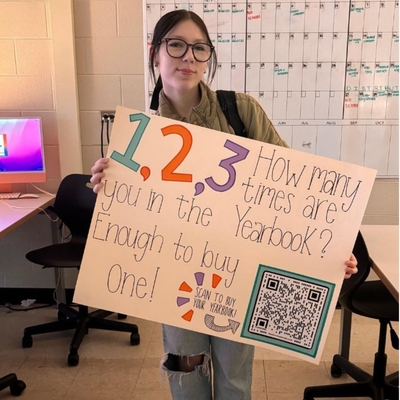 1, 2, 3 How many
times are
you in the Yearbook?
Enough to buy
One!
SCAN TO BUY
YOUR YEARBOOK!